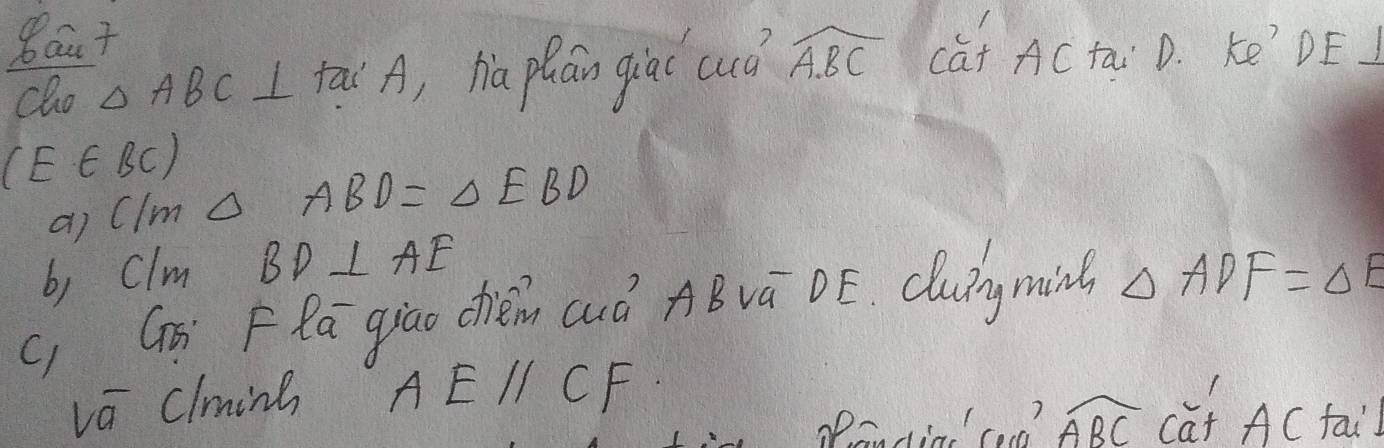 Câu 7
Cho △ ABC ⊥ tại A, tia phân giác của ABC cắt AC tại D. kẻ DE ⊥
(E ∈ BC)
a) C/m △ ABD = △ EBD
b) C/m BD ⊥ AE
c) Gọi F là giao điểm của AB và DE. chứng minh △ ADF = △ E
và C/minh AE // CF.
ABC cắt AC tại